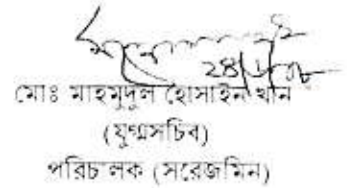 মোঃ মাহমুদুল হোসাইন খান
(যুগ্মসচিব)
পরিচালক (সরেজমিন)